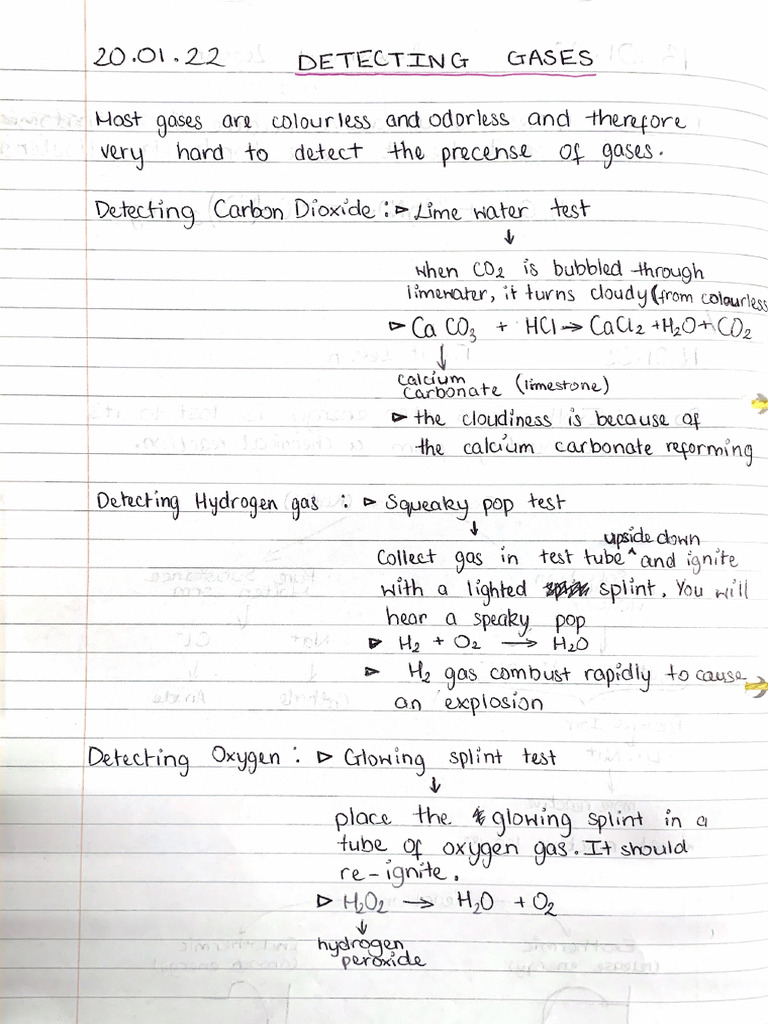 20.01.22 DETECTING GASES
Most gases are colourless and odorless and therefore
very hard to detect the precense of gases.
Detecting Carbon Dioxide : ▹ Lime water test
↓
when CO₂ is bubbled through
limewater, it turns cloudy (from colourless
▹ CaCO₃ + HCl → CaCl₂ + H₂O + CO₂
↓
calcium
carbonate (limestone)
▹ the cloudiness is because of
the calcium carbonate reforming
Detecting Hydrogen gas : ▹ Squeaky pop test
↓
upside down
Collect gas in test tube ^ and ignite
with a lighted splint. You will
hear a speaky pop
▹ H₂ + O₂ → H₂O
▹ H₂ gas combust rapidly to cause
an explosion
Detecting Oxygen : ▹ Glowing splint test
↓
place the glowing splint in a
tube of oxygen gas. It should
re-ignite.
▹ H₂O₂ → H₂O + O₂
↓
hydrogen
peroxide